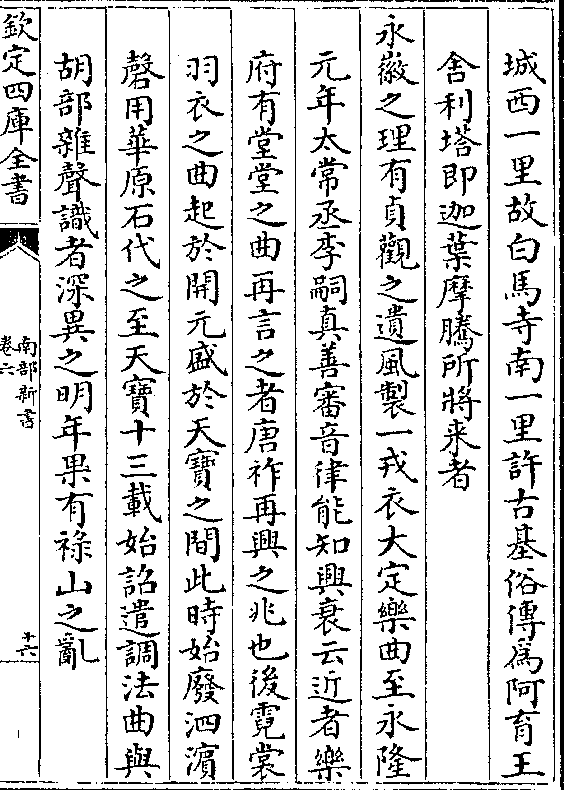 城西一里故白馬寺南一里許古基俗傳爲阿育王
舍利塔即迦葉摩騰所將来者
永徽之理有貞觀之遺風製一戎衣大定樂曲至永隆
元年太常丞李嗣真善審音律能知興衰云近者樂
府有堂堂之曲再言之者唐祚再興之兆也後霓裳
羽衣之曲起於開元盛於天寶之間此時始廢泗濵
磬用華原石代之至天寶十三載始詔遣調法曲與
胡部雜聲識者深異之明年果有祿山之亂
欽定四庫全書
南部新書
卷六
十六